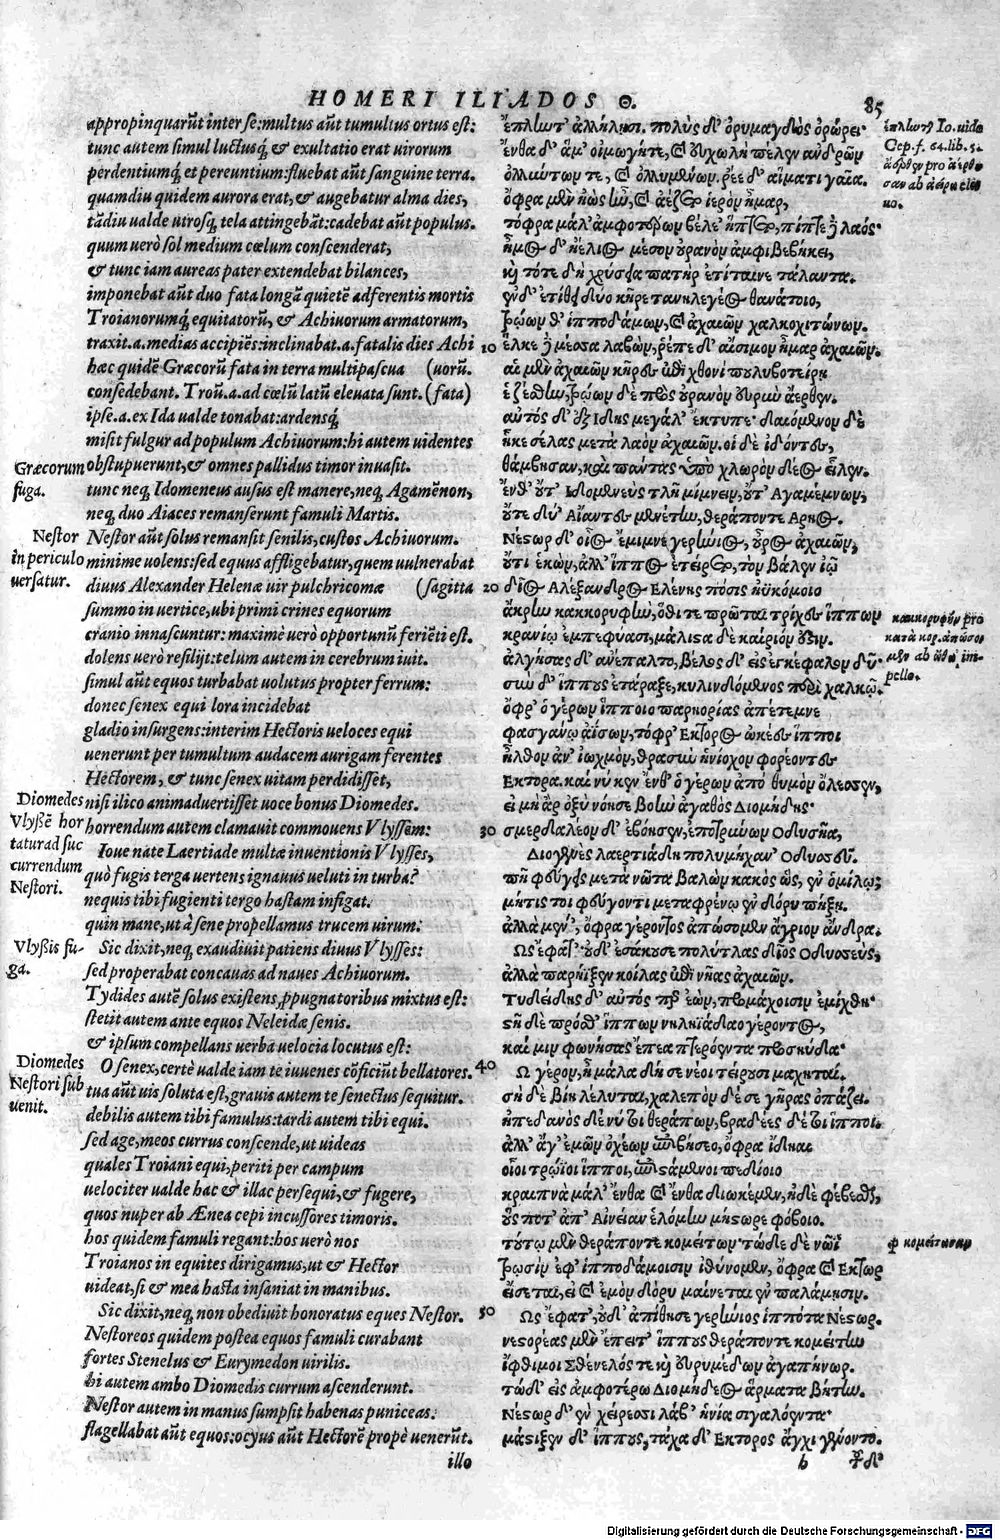 HOMERI ILIADOS Θ. 85
appropinquarũt inter se: multus aũt tumultus ortus est:
tunc autem simul luctusq́, & exultatio erat uirorum
perdentiumq́, et pereuntium: fluebat aũt sanguine terra.
quamdiu quidem aurora erat, & augebatur alma dies,
tãdiu ualde utrosq, tela attingebãt: cadebat aũt populus.
quum uerò sol medium cœlum conscenderat,
& tunc iam aureas pater extendebat bilances,
imponebat aũt duo fata longã quietẽ adferentis mortis
Troianorumq́, equitatorũ, & Achiuorum armatorum,
traxit.a.medias accipiẽs: inclinabat.a.fatalis dies Achi
hæc quidẽ Græcorũ fata in terra multipascua (uorũ.
consedebant. Troũ.a.ad cœlũ latũ eleuata sunt. (fata)
ipse.a.ex Ida ualde tonabat: ardensq́,
misit fulgur ad populum Achiuorum: hi autem uidentes
obstupuerunt, & omnes pallidus timor inuasit.
tunc neq, Idomeneus ausus est manere, neq, Agamẽnon,
neq, duo Aiaces remanserunt famuli Martis.
Nestor aũt solus remansit senilis, custos Achiuorum.
minime uolens: sed equus affligebatur, quem uulnerabat
diuus Alexander Helenæ uir pulchricomæ (sagitta
summo in uertice, ubi primi crines equorum
cranio innascuntur: maximè uerò opportunũ feriẽti est.
dolens uerò resilijt: telum autem in cerebrum iuit.
simul aũt equos turbabat uolutus propter ferrum:
donec senex equi lora incidebat
gladio insurgens: interim Hectoris ueloces equi
uenerunt per tumultum audacem aurigam ferentes
Hectorem, & tunc senex uitam perdidisset,
nisi ilico animaduertisset uoce bonus Diomedes.
horrendum autem clamauit commouens Vlyssem:
Ioue nate Laertiade multæ inuentionis Vlysses,
quò fugis terga uertens ignauus ueluti in turba?
nequis tibi fugienti tergo hastam infigat.
quin mane, ut à sene propellamus trucem uirum:
Sic dixit, neq, exaudiuit patiens diuus Vlysses:
sed properabat concauas ad naues Achiuorum.
Tydides autẽ solus existens, ꝓpugnatoribus mixtus est:
stetit autem ante equos Neleidæ senis.
& ipsum compellans uerba uelocia locutus est:
O senex, certè ualde iam te iuuenes cõficiũt bellatores.
tua aũt uis soluta est, grauis autem te senectus sequitur.
debilis autem tibi famulus: tardi autem tibi equi.
sed age, meos currus conscende, ut uideas
quales Troiani equi, periti per campum
uelociter ualde hac & illac persequi, & fugere,
quos nuper ab Ænea cepi incussores timoris.
hos quidem famuli regant: hos uerò nos
Troianos in equites dirigamus, ut & Hector
uideat, si & mea hasta insaniat in manibus.
Sic dixit, neq, non obediuit honoratus eques Nestor.
Nestoreos quidem postea equos famuli curabant
fortes Stenelus & Eurymedon uirilis.
hi autem ambo Diomedis currum ascenderunt.
Nestor autem in manus sumpsit habenas puniceas.
flagellabat aũt equos: ocyus aũt Hectorẽ propè uenerũt.
illo
Græcorum
fuga.
Nestor
in periculo
uersatur.
Diomedes
Vlyßẽ hor
tatur ad suc
currendum
Nestori.
Vlyßis fu-
ga.
Diomedes
Nestori sub
uenit.
ἔπλωντ' ἀλλήλησι. πολὺς δ' ὀρυμαγδὸς ὀρώρει·
ἔνθα δ' ἅμ' οἰμωγήτε, καὶ εὐχωλὴ πέλεν ἀνδρῶν
ὀλλύντων τε, καὶ ὀλλυμένων. ῥέε δ' αἵματι γαῖα.
ὄφρα μὲν ἠὼς ἦν, καὶ ἀέξετο ἱερὸν ἦμαρ,
τόφρα μάλ' ἀμφοτέρων βέλε' ἥπτετο, πίπτε δὲ λαός·
ἦμος δ' ἠέλιος μέσον οὐρανὸν ἀμφιβεβήκει,
καὶ τότε δὴ χρύσεια πατὴρ ἐτίταινε τάλαντα.
ἐν δ' ἐτίθει δύο κῆρε τανηλεγέος θανάτοιο,
Τρώων θ' ἱπποδάμων, καὶ ἀχαιῶν χαλκοχιτώνων.
10 ἕλκε δὲ μέσσα λαβὼν, ῥέπε δ' αἴσιμον ἦμαρ ἀχαιῶν.
αἱ μὲν ἀχαιῶν κῆρες ἐπὶ χθονὶ πουλυβοτείρῃ
ἑζέσθην, Τρώων δὲ πρὸς οὐρανὸν εὐρὺν ἄερθεν.
αὐτὸς δ' ἐξ Ἴδης μεγάλ' ἔκτυπε· δαιόμενον δὲ
ἧκε σέλας μετὰ λαὸν ἀχαιῶν. οἱ δὲ ἰδόντες,
θάμβησαν, καὶ πάντας ὑπὸ χλωρὸν δέος εἷλεν.
ἔνθ' οὔτ' Ἰδομενεὺς τλῆ μίμνειν, οὔτ' Ἀγαμέμνων,
οὔτε δύ' Αἴαντες μενέτην, θεράποντε Ἄρηος.
Νέστωρ δ' οἶος ἔμιμνε γερήνιος, οὖρος ἀχαιῶν,
οὔτι ἑκὼν, ἀλλ' ἵππος ἐτείρετο, τὸν βάλεν ἰῷ
20 δῖος Ἀλέξανδρος Ἑλένης πόσις ἠϋκόμοιο
ἄκρην κακκορυφὴν, ὅθι τε πρῶται τρίχες ἵππων
κρανίῳ ἐμπεφύασι, μάλιστα δὲ καίριόν ἐστιν.
ἀλγήσας δ' ἀνέπαλτο, βέλος δ' εἰς ἐγκέφαλον δῦ·
σὺν δ' ἵππους ἐτάραξε, κυλινδόμενος περὶ χαλκῷ.
ὄφρ' ὁ γέρων ἵπποιο παρηορίας ἀπέτεμνε
φασγάνῳ ἀΐσσων, τόφρ' Ἕκτορος ὠκέες ἵπποι
ἦλθον ἀν' ἰωχμὸν, θρασὺν ἡνίοχον φορέοντες
Ἕκτορα. καί νύ κεν ἔνθ' ὁ γέρων ἀπὸ θυμὸν ὄλεσσεν,
εἰ μὴ ἄρ ὀξὺ νόησε βοὴν ἀγαθὸς Διομήδης·
30 σμερδαλέον δ' ἐβόησεν, ἐποτρύνων Ὀδυσῆα,
Διογενὲς λαερτιάδη πολυμήχαν' Ὀδυσσεῦ.
πῆ φεύγεις μετὰ νῶτα βαλὼν κακὸς ὣς, ἐν ὁμίλῳ;
μήτις τοι φεύγοντι μεταφρένῳ ἐν δόρυ πήξῃ.
ἀλλὰ μέν', ὄφρα γέροντος ἀπώσομεν ἄγριον ἄνδρα.
Ὣς ἔφατ'· οὐδ' ἐσάκουσε πολύτλας δῖος Ὀδυσσεύς,
ἀλλὰ παρήϊξεν κοίλας ἐπὶ νῆας ἀχαιῶν.
Τυδείδης δ' αὐτός περ ἐὼν, προμάχοισιν ἐμίχθη·
στῆ δὲ πρόσθ' ἵππων νηληϊάδαο γέροντος,
καί μιν φωνήσας ἔπεα πτερόεντα προσηύδα·
40 Ὦ γέρον, ἦ μάλα δή σε νέοι τείρουσι μαχηταί.
σὴ δὲ βίη λέλυται, χαλεπὸν δέ σε γῆρας ὀπάζει.
ἠπεδανὸς δέ νύ τοι θεράπων, βραδέες δέ τοι ἵπποι.
ἀλλ' ἄγ' ἐμῶν ὀχέων ἐπιβήσεο, ὄφρα ἴδηαι
οἷοι τρώϊοι ἵπποι, ἐπιστάμενοι πεδίοιο
κραιπνὰ μάλ' ἔνθα καὶ ἔνθα διωκέμεν, ἠδὲ φέβεσθαι,
οὕς ποτ' ἀπ' Αἰνείαν ἑλόμην μήστωρε φόβοιο.
τούτω μὲν θεράποντε κομείτων· τώδε δὲ νῶϊ
Τρωσὶν ἐφ' ἱπποδάμοισιν ἰθύνομεν, ὄφρα καὶ Ἕκτωρ
εἴσεται, εἰ καὶ ἐμὸν δόρυ μαίνεται ἐν παλάμῃσιν.
50 Ὣς ἔφατ', οὐδ' ἀπίθησε γερήνιος ἱππότα Νέστωρ.
νεστορέας μὲν ἔπειτ' ἵππους θεράποντε κομείτην
ἴφθιμοι Σθένελός τε καὶ Εὐρυμέδων ἀγαπήνωρ.
τὼ δ' εἰς ἀμφοτέρω Διομήδεος ἅρματα βήτην.
Νέστωρ δ' ἐν χείρεσσι λάβ' ἡνία σιγαλόεντα·
μάστιξεν δ' ἵππους, τάχα δ' Ἕκτορος ἄγχι γένοντο.
h τοῦ δ'
ἔπλωντ' Io. uide
Cep. f. 64. lib. 5.
ἄερθεν pro ἀέρθη
σαν ab ἀείρω eleuo.
κακκορυφὴν pro
κατὰ κορ. ἀπώσομεν ab ὠθῶ, impello.
κομείτωσαν
Digitalisierung gefördert durch die Deutsche Forschungsgemeinschaft - DFG